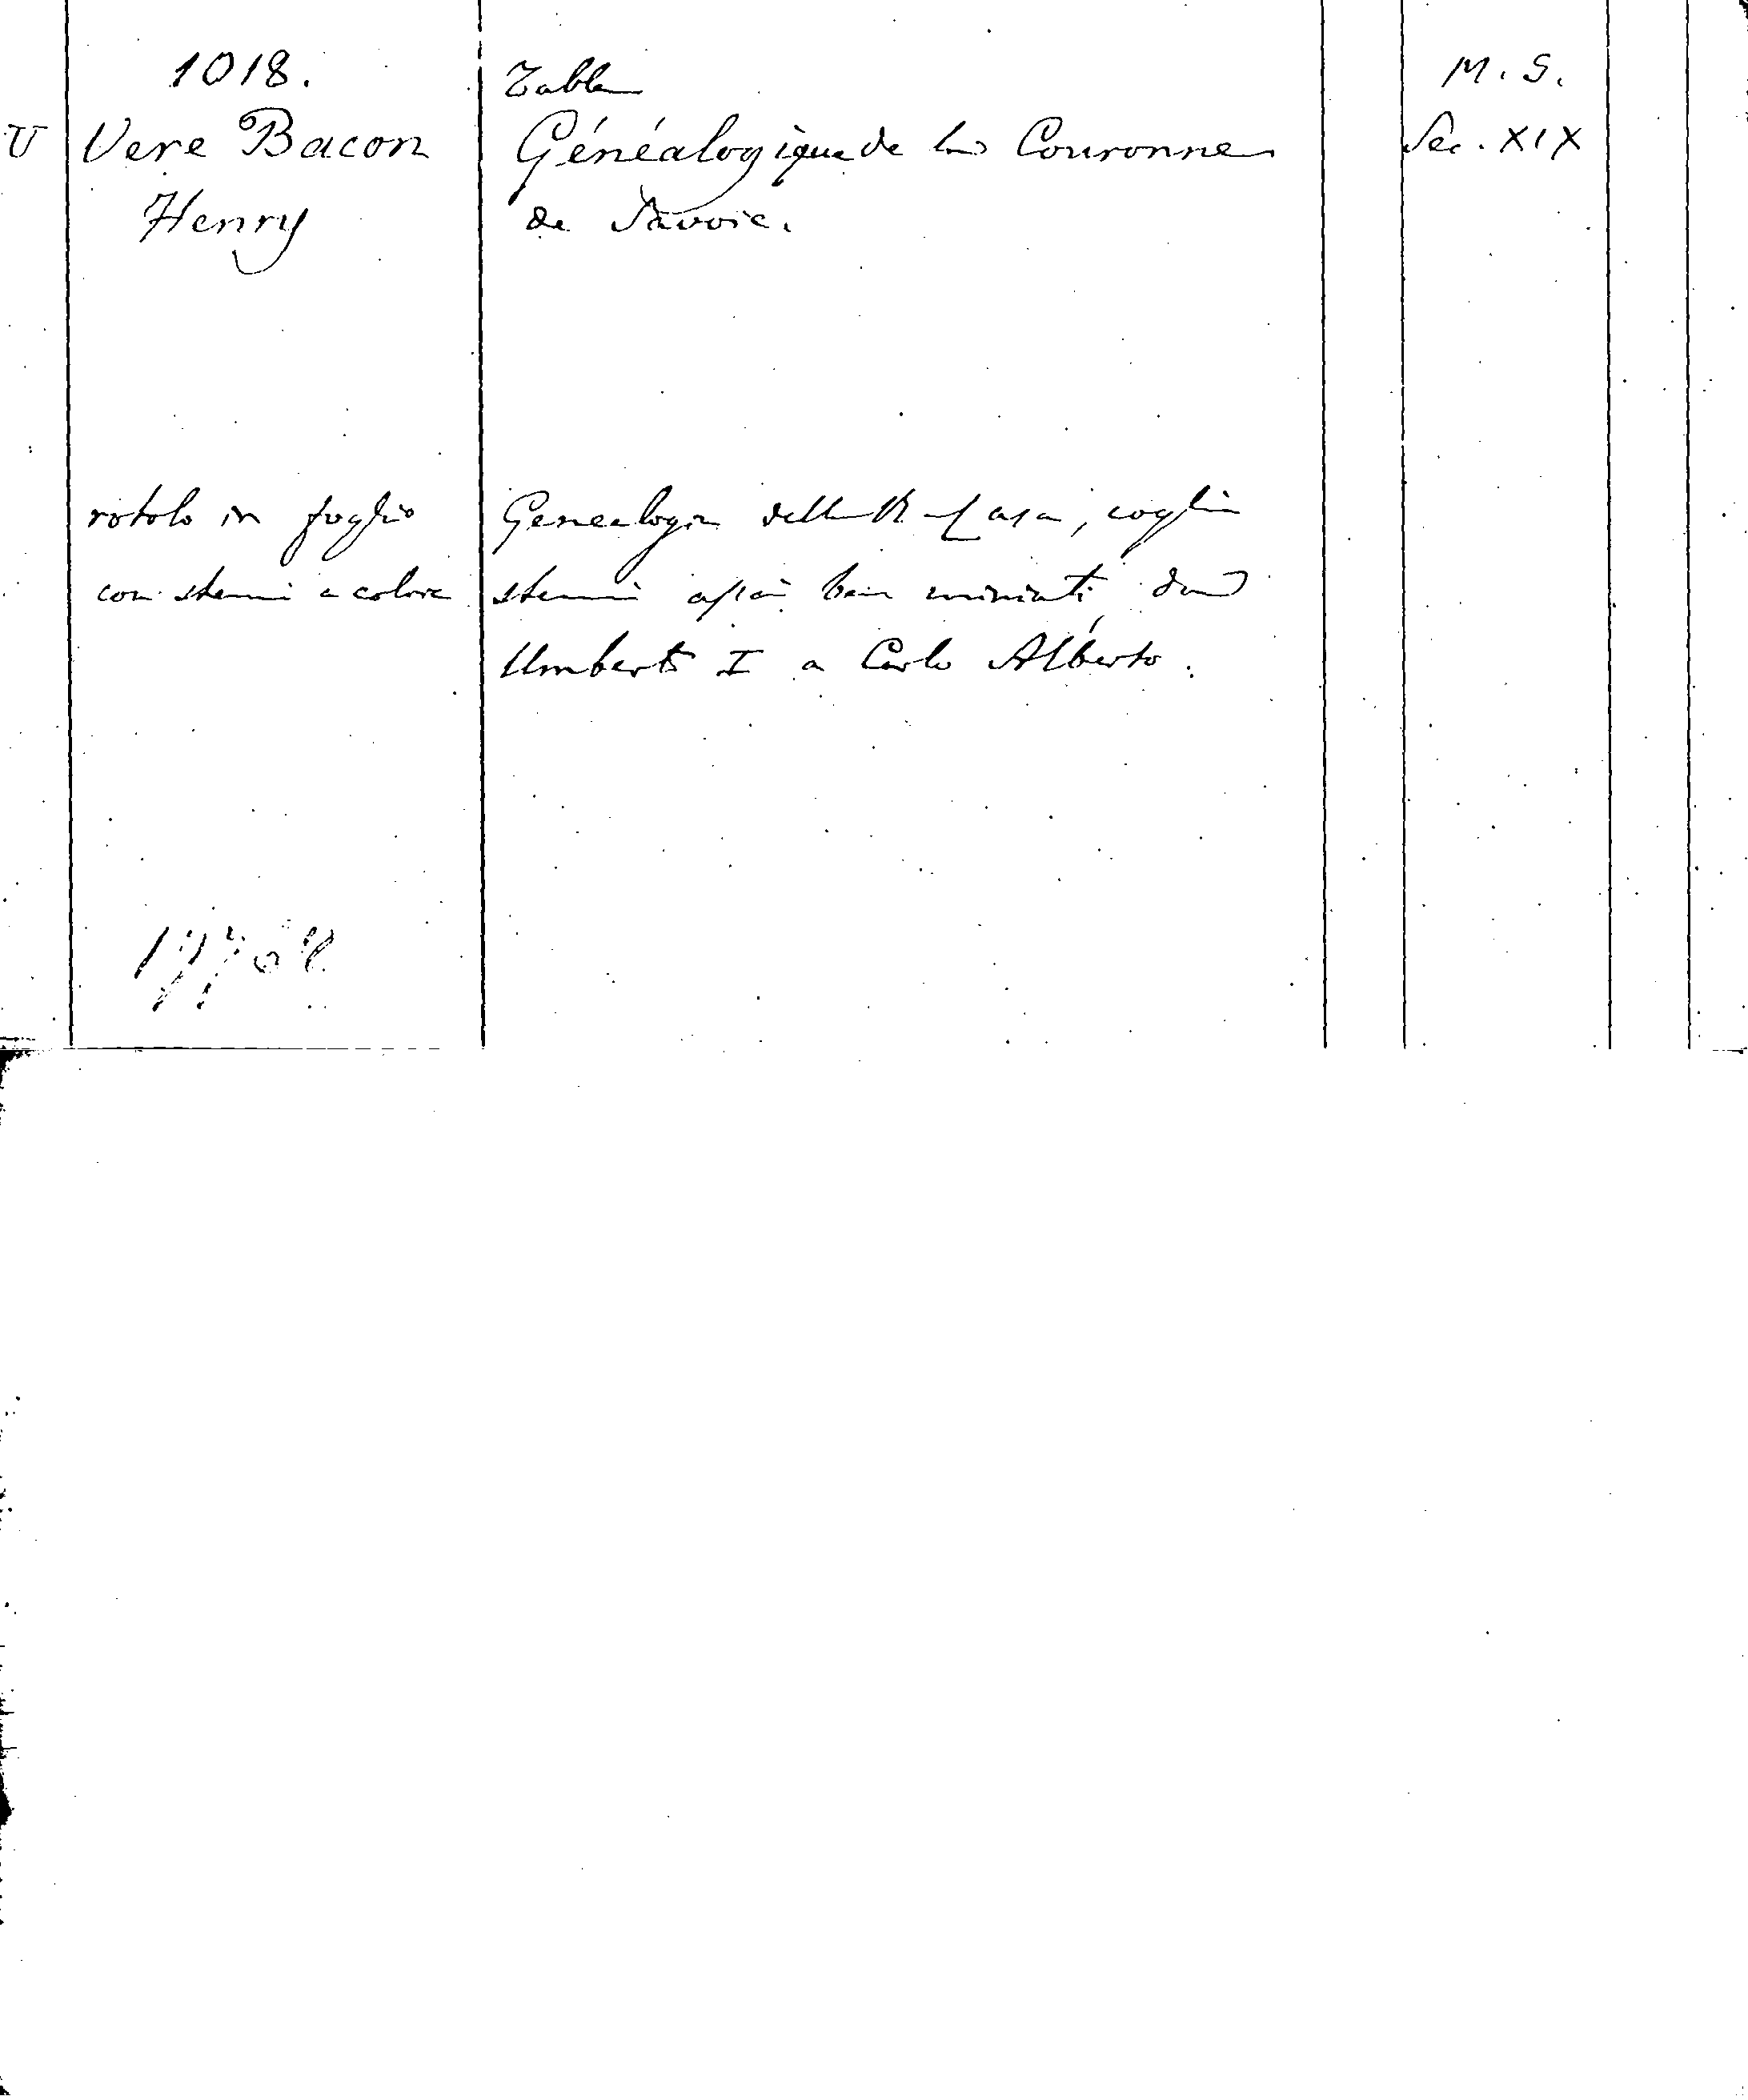 1018.
U Vere Bacon
Henry
Table
Généalogique de la Couronne
de Savoie.
M. S.
Sec. XIX
rotolo in foglio
con stemmi a colore
Genealogia della R. Casa, cogli
stemmi assai ben miniati da
Umberto I a Carlo Alberto.